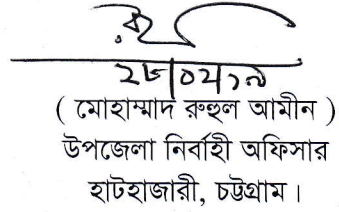 ( মোহাম্মাদ রুহুল আমীন )
উপজেলা নির্বাহী অফিসার
হাটহাজারী, চট্টগ্রাম ।